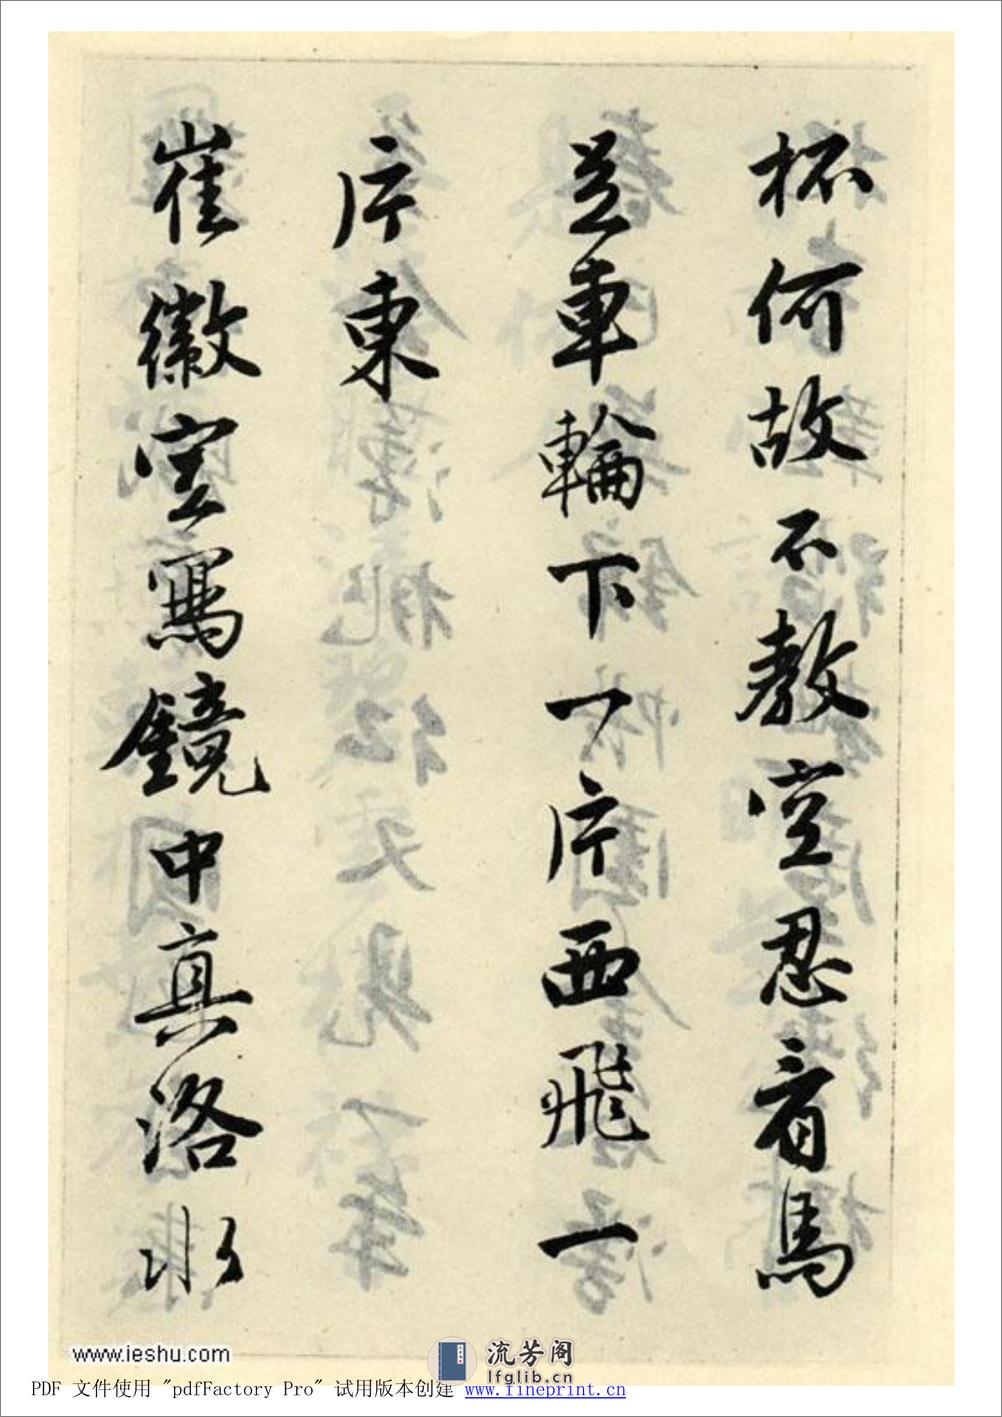 杯何故不教空忍看馬
足車輪下一片西飛一
片東
崔徽空寫鏡中真洛水
www.ieshu.com
流芳阁
lfglib.cn
PDF 文件使用 "pdfFactory Pro" 试用版本创建 www.fineprint.cn